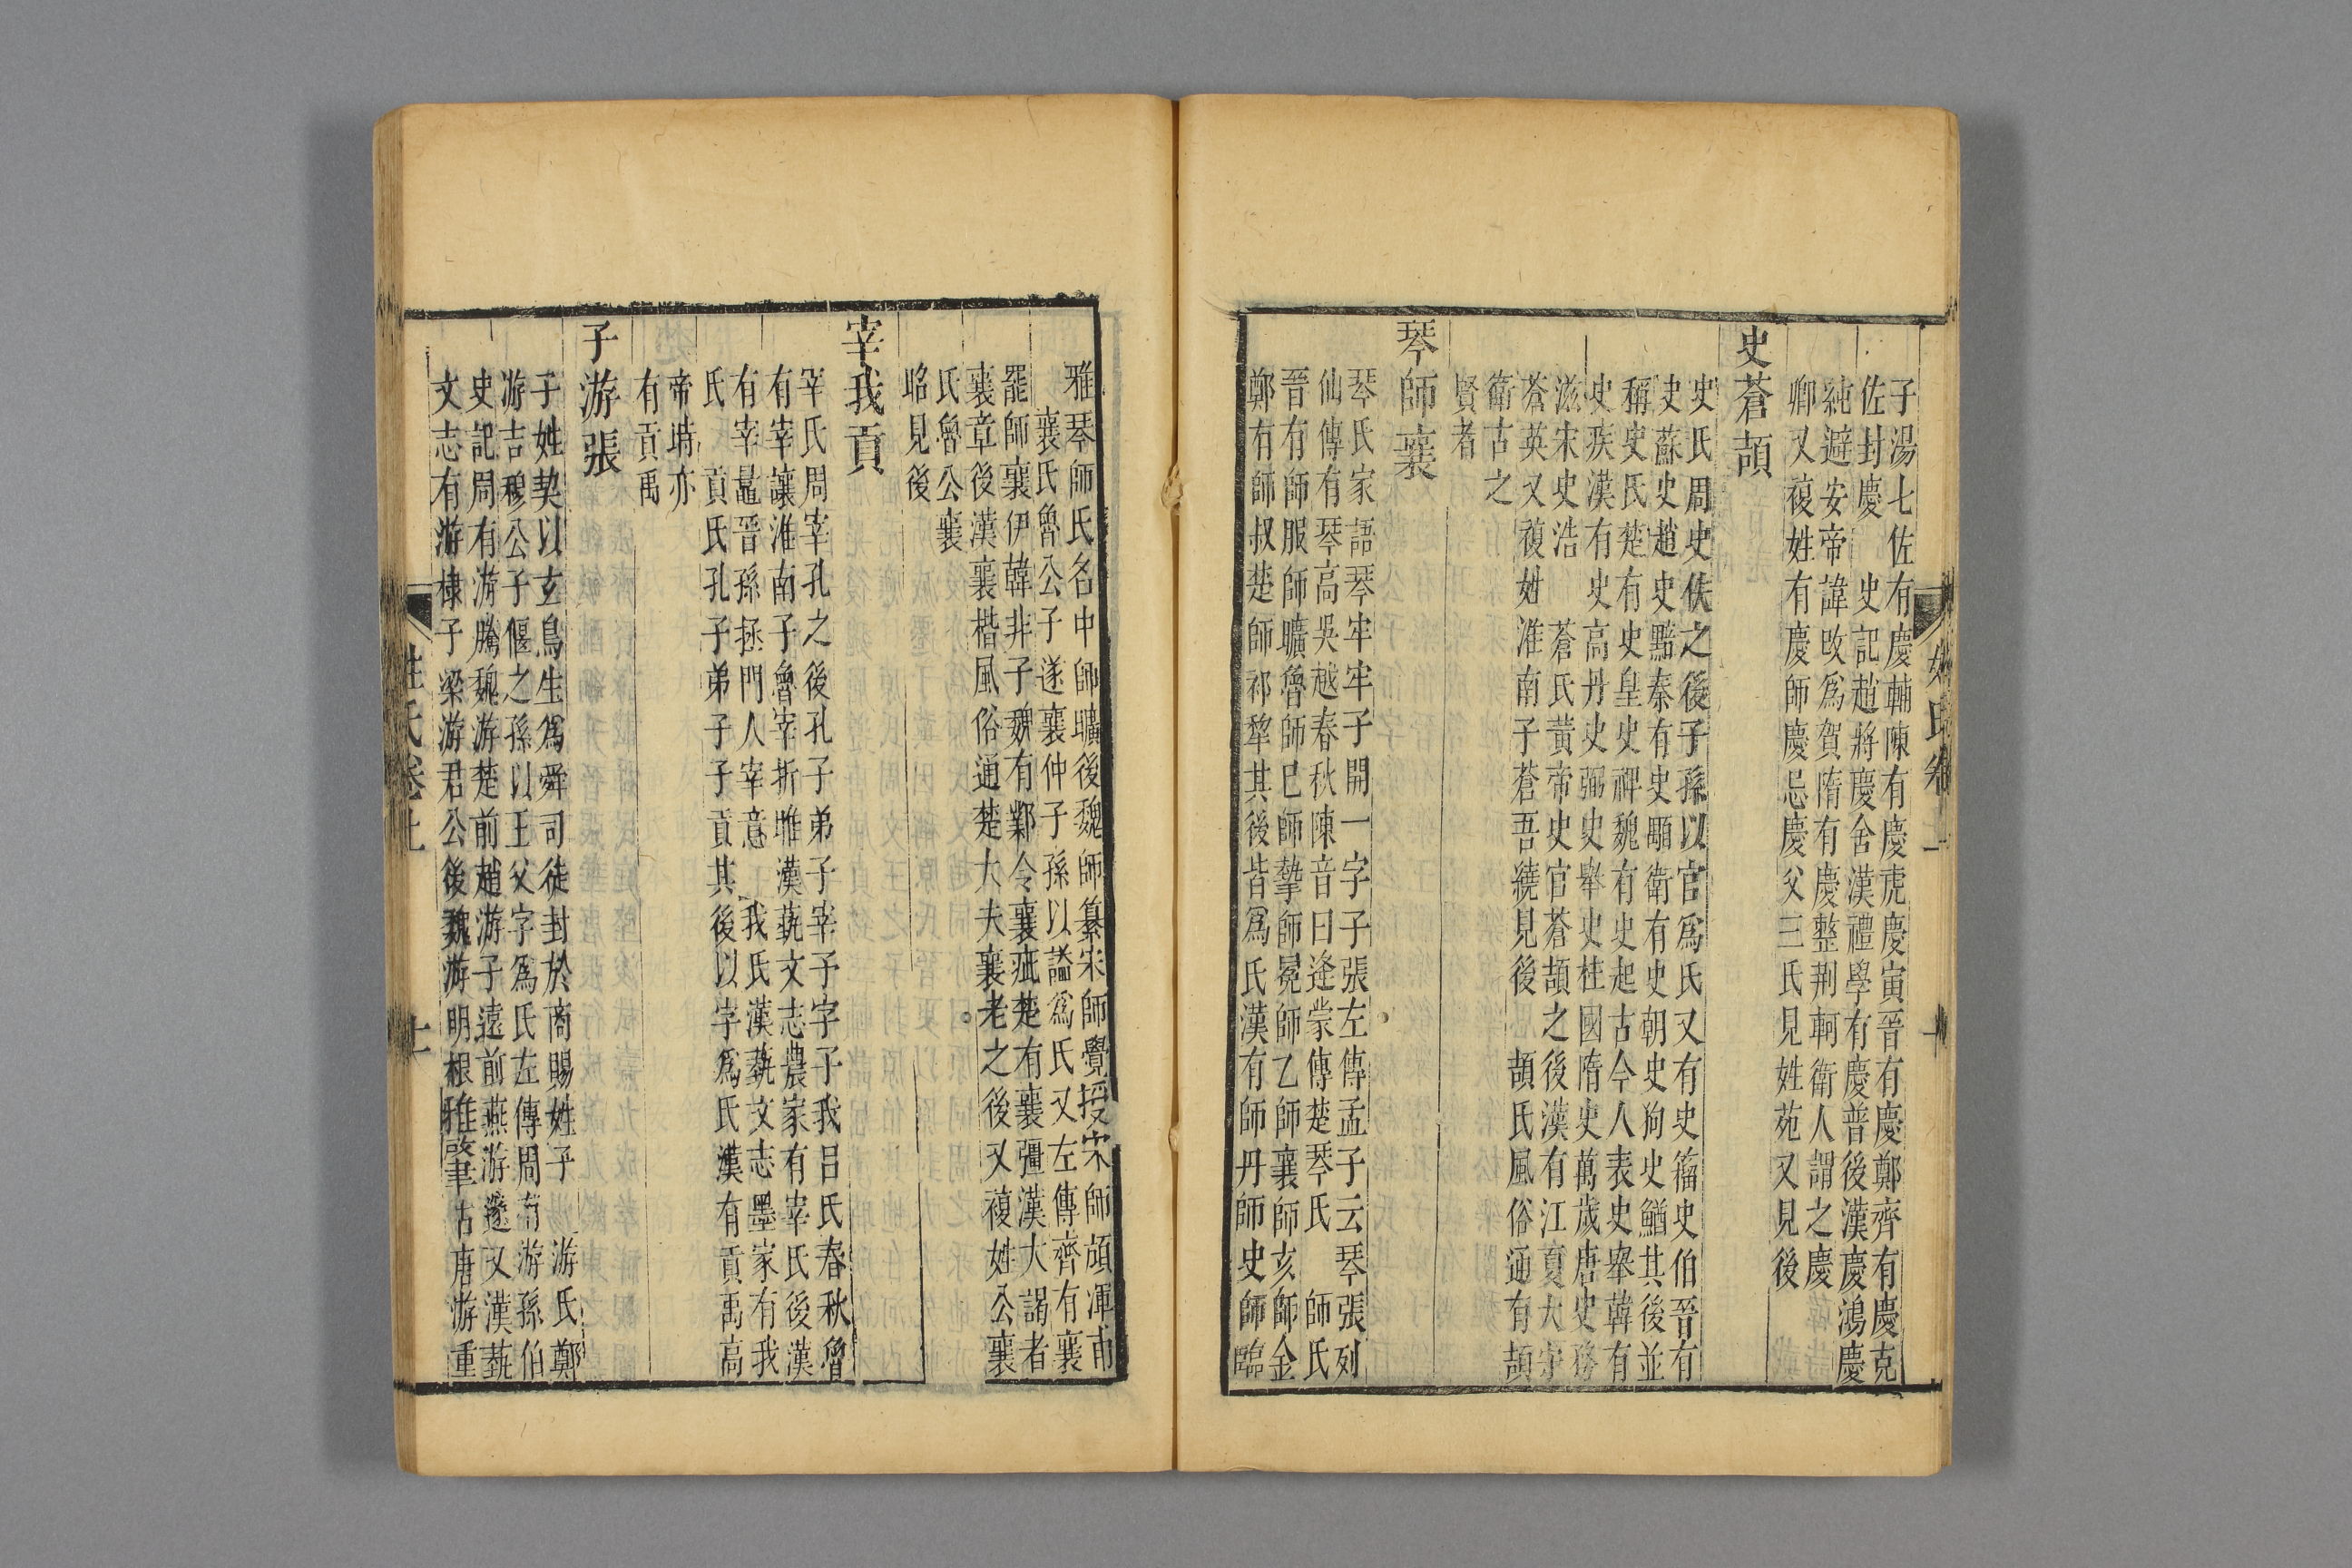 子湯七佐有慶輔陳有慶虎慶寅晉有慶鄭齊有慶克
佐封慶　史記趙將慶舍漢禮學有慶普後漢慶鴻慶
純避安帝諱改為賀隋有慶整荆軻衛人謂之慶
卿又複姓有慶師慶忌慶父三氏見姓苑又見後
史蒼頡
史氏周史佚之後子孫以官爲氏又有史籀史伯晉有
史蘇史趙史黯秦有史顒衛有史朝史狗史鰌其後並
稱史氏楚有史皇史褌魏有史起古今人表史舉韓有
史疾漢有史高丹史弼史舉史柱國隋史萬歲唐史務
滋宋史浩　蒼氏黃帝史官蒼頡之後漢有江夏大守
蒼英又複姓淮南子蒼吾繞見後　頡氏風俗通有頡
衛古之
賢者
琴師襄
琴氏家語琴牢牢子開一字子張左傳孟子云琴張列
仙傳有琴高吳越春秋陳音曰逄蒙傳楚琴氏　師氏
晉有師服師曠魯師巳師摯師冕師乙師襄師亥師金
鄭有師叔楚師祁犂其後皆爲氏漢有師丹師史師臨
雅琴師氏名中師曠後魏師纂宋師覺授宋師頏渾甫
襄氏魯公子遂襄仲子孫以謚爲氏又左傳齊有襄
罷師襄伊韓非子魏有鄴令襄疵楚有襄彊漢大謁者
襄章後漢襄楷風俗通楚大夫襄老之後又複姓公襄
氏魯公襄
昭見後
宰我貢
宰氏周宰孔之後孔子弟子宰予字子我吕氏春秋魯
有宰讓淮南子魯宰折睢漢藝文志農家有宰氏後漢
有宰鼂晉孫拯門人宰意　我氏漢藝文志墨家有我
氏　貢氏孔子弟子子貢其後以字爲氏漢有貢禹高
帝時亦
有貢禹
子游張
子姓契以玄鳥生爲舜司徒封於商賜姓子　游氏鄭
游吉穆公子偃之孫以王父字爲氏左傳周有游孫伯
史記周有游騰魏游楚前趙游子遠前燕游邃又漢藝
文志有游棣子梁游君公後魏游明根雅肇古唐游重
姓氏卷上　十